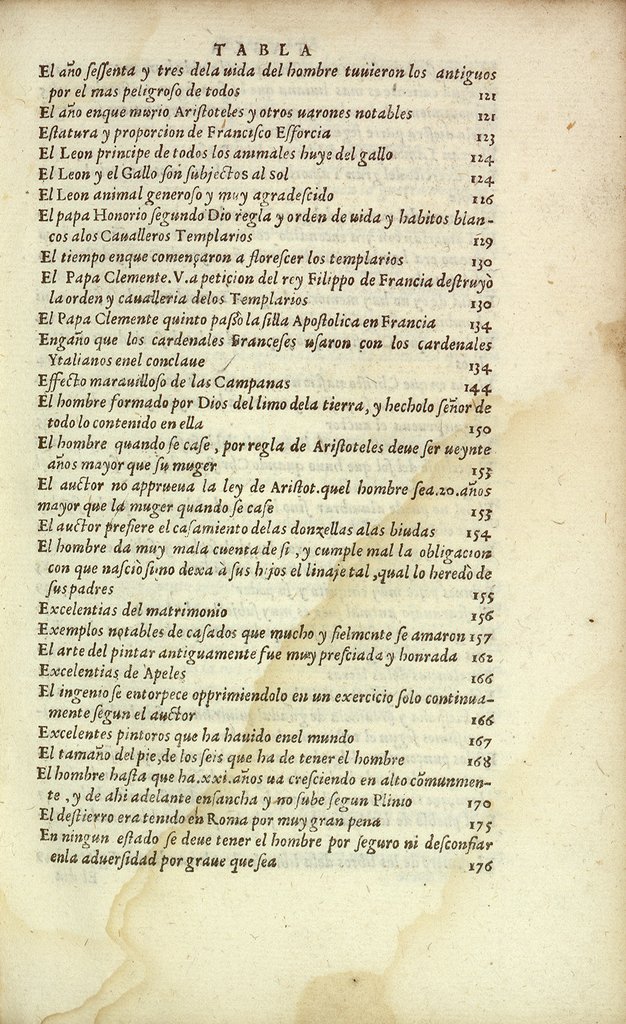 TABLA
El año ſeſſenta y tres dela uida del hombre tuuieron los antiguos
por el mas peligroſo de todos 121
El año enque murio Ariſtoteles y otros uarones notables 121
Eſtatura y proporcion de Franciſco Eſforcia 123
El Leon principe de todos los animales huye del gallo 124
El Leon y el Gallo ſon ſubjectos al sol 124
El Leon animal generoſo y muy agradeſcido 126
El papa Honorio ſegundo Dio regla y orden de uida y habitos blan-
cos alos Caualleros Templarios 129
El tiempo enque començaron a floreſcer los templarios 130
El Papa Clemente.V.a peticion del rey Filippo de Francia deſtruyò
la orden y caualleria delos Templarios 130
El Papa Clemente quinto paſſò la ſilla Apoſtolica en Francia 134
Engaño que los cardenales Franceſes uſaron con los cardenales
Ytalianos enel conclaue 134
Effecto marauilloſo de las Campanas 144
El hombre formado por Dios del limo dela tierra, y hecholo ſeñor de
todo lo contenido en ella 150
El hombre quando ſe caſe, por regla de Ariſtoteles deue ſer ueynte
años mayor que ſu muger 153
El auctor no apprueua la ley de Ariſtot.quel hombre ſea.20.años
mayor que la muger quando ſe caſe 153
El auctor prefiere el caſamiento delas donzellas alas biudas 154
El hombre da muy mala cuenta de ſi, y cumple mal la obligacion
con que naſciò ſi no dexa à ſus hijos el linaje tal, qual lo heredò de
ſus padres 155
Excelentias del matrimonio 156
Exemplos notables de caſados que mucho y fielmente ſe amaron 157
El arte del pintar antiguamente fue muy preſciada y honrada 162
Excelentias de Apeles 166
El ingenio ſe entorpece opprimiendolo en un exercicio ſolo continua-
mente ſegun el auctor 166
Excelentes pintoros que ha hauido enel mundo 167
El tamaño del pie, de los ſeis que ha de tener el hombre 168
El hombre haſta que ha.xxi.años ua creſciendo en alto cõmunmen-
te, y de ahi adelante enſancha y no ſube ſegun Plinio 170
El deſtierro era tenido en Roma por muy gran pena 175
En ningun eſtado ſe deue tener el hombre por ſeguro ni deſconfiar
enla aduerſidad por graue que ſea 176